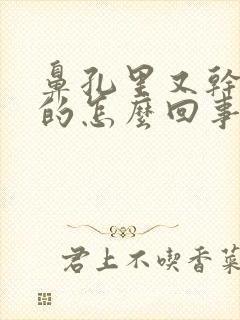 鼻孔里又幹
的怎麼回事
君上不喫香菜